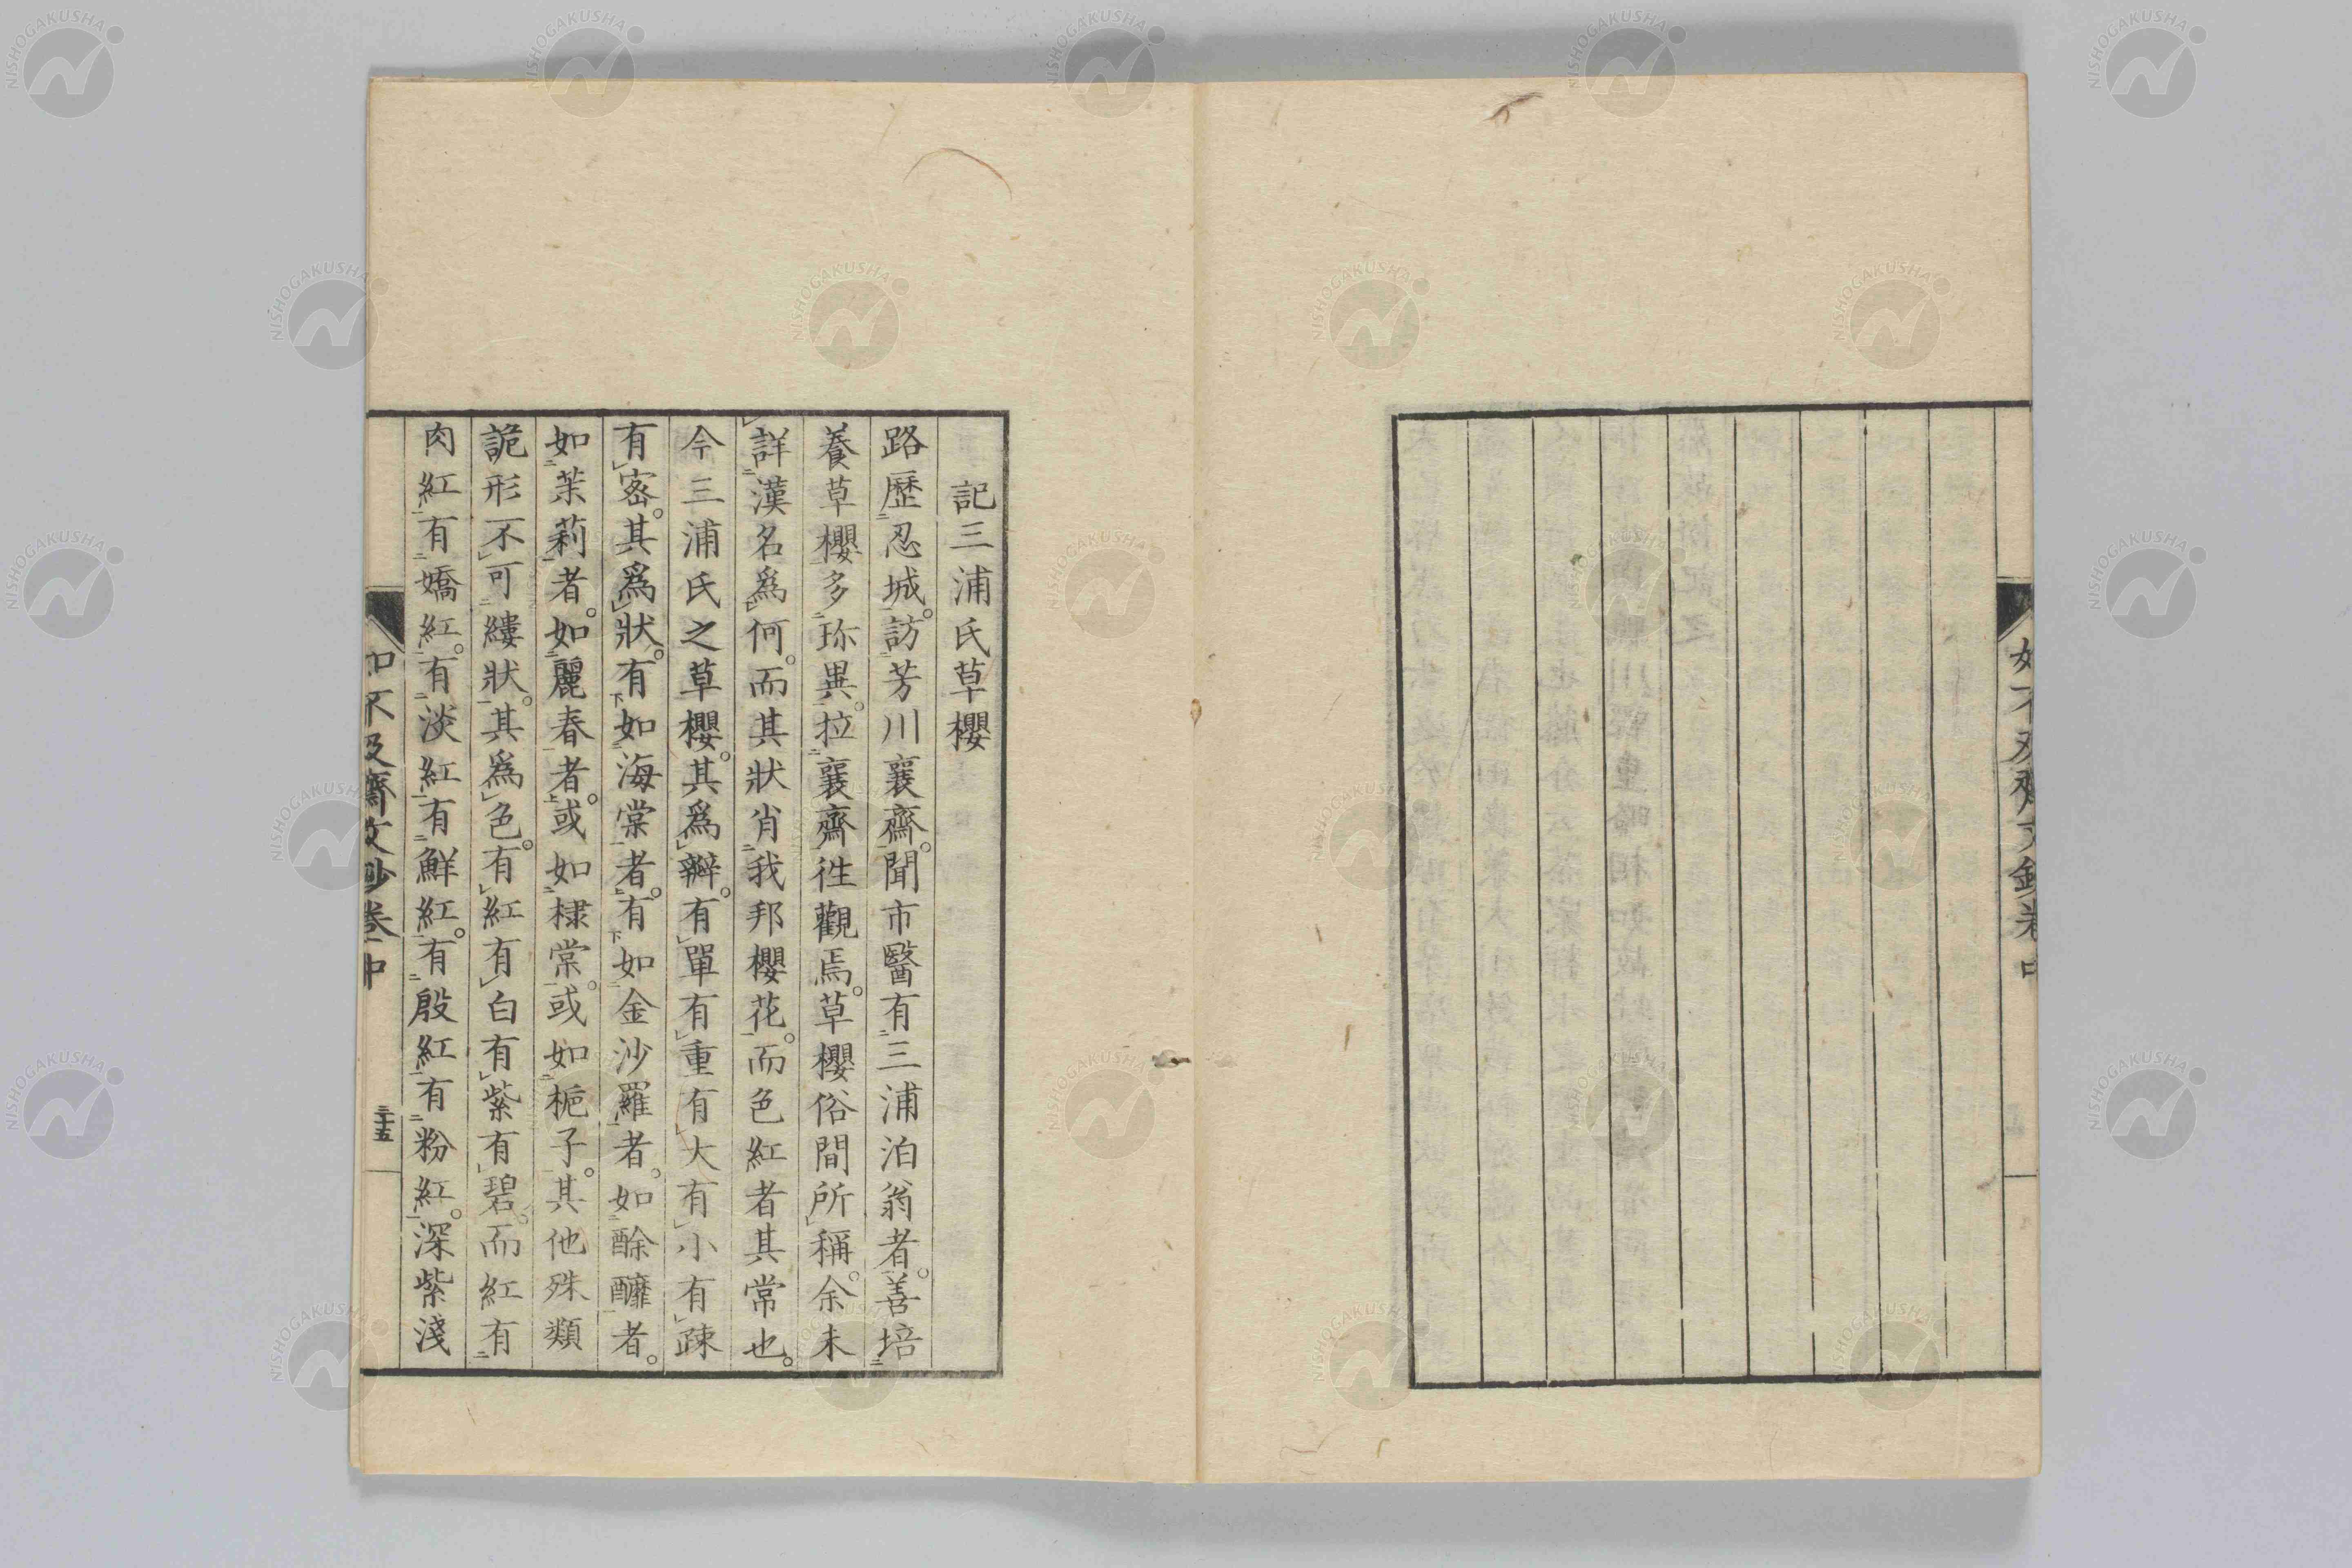 如不及齋文鈔卷中
記三浦氏草櫻
路歷忍城。訪芳川襄齋。聞市醫有三浦泊翁者。善培
養草櫻多珎異。拉襄齋徃觀焉。草櫻俗間所稱。余未
詳漢名爲何。而其狀肖我邦櫻花。而色紅者其常也。
今三浦氏之草櫻。其爲瓣。有單有重有大有小有疎
有密。其爲狀。有如海棠者。有如金沙羅者。如酴醾者。
如茉莉者。如麗春者。或如棣棠。或如梔子。其他殊類
詭形不可縷狀。其爲色。有紅有白有紫有碧。而紅有
肉紅有嬌紅。有淡紅有鮮紅。有殷紅有粉紅。深紫淺
如不及齋文鈔卷中
三十五